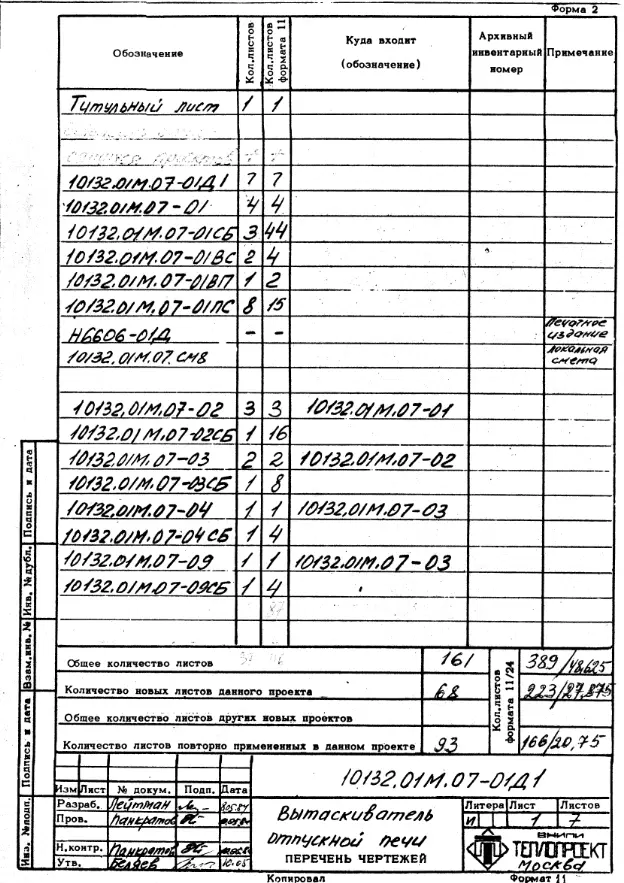 Форма 2
Обозначение Кол.листов Кол.листов формата 11 Куда входит (обозначение) Архивный инвентарный номер Примечание
Титульный лист 1 1
10132.01М.07-01Д1 7 7
10132.01М.07-01 4 4
10132.01М.07-01СБ 3 44
10132.01М.07-01ВС 2 4
10132.01М.07-01ВП 1 2
10132.01М.07-01ПС 8 15
Н6606-01Д - - Печатное издание
10132.01М.07.СМ8 Локальная смета
10132.01М.07-02 3 3 10132.01М.07-01
10132.01М.07-02СБ 1 16
10132.01М.07-03 2 2 10132.01М.07-02
10132.01М.07-03СБ 1 8
10132.01М.07-04 1 1 10132.01М.07-03
10132.01М.07-04СБ 1 4
10132.01М.07-09 1 1 10132.01М.07-03
10132.01М.07-09СБ 1 4
Общее количество листов 161 Кол.листов формата 11/24 389/48,625
Количество новых листов данного проекта 68 223/27,875
Общее количество листов других новых проектов
Количество листов повторно примененных в данном проекте 93 166/20,75
Инв. №подл. Подпись и дата Взам.инв.№ Инв. №дубл. Подпись и дата
10132.01М.07-01Д1
Изм Лист № докум. Подп. Дата
Разраб. Лейтман
Пров. Панкратов
Н.контр. Панкратов
Утв. Беляев 10.05
Вытаскиватель
отпускной печи
ПЕРЕЧЕНЬ ЧЕРТЕЖЕЙ
Литера Лист Листов
И 1 7
ВНИПИ
ТЕПЛОПРОЕКТ
Москва
Копировал Формат 11